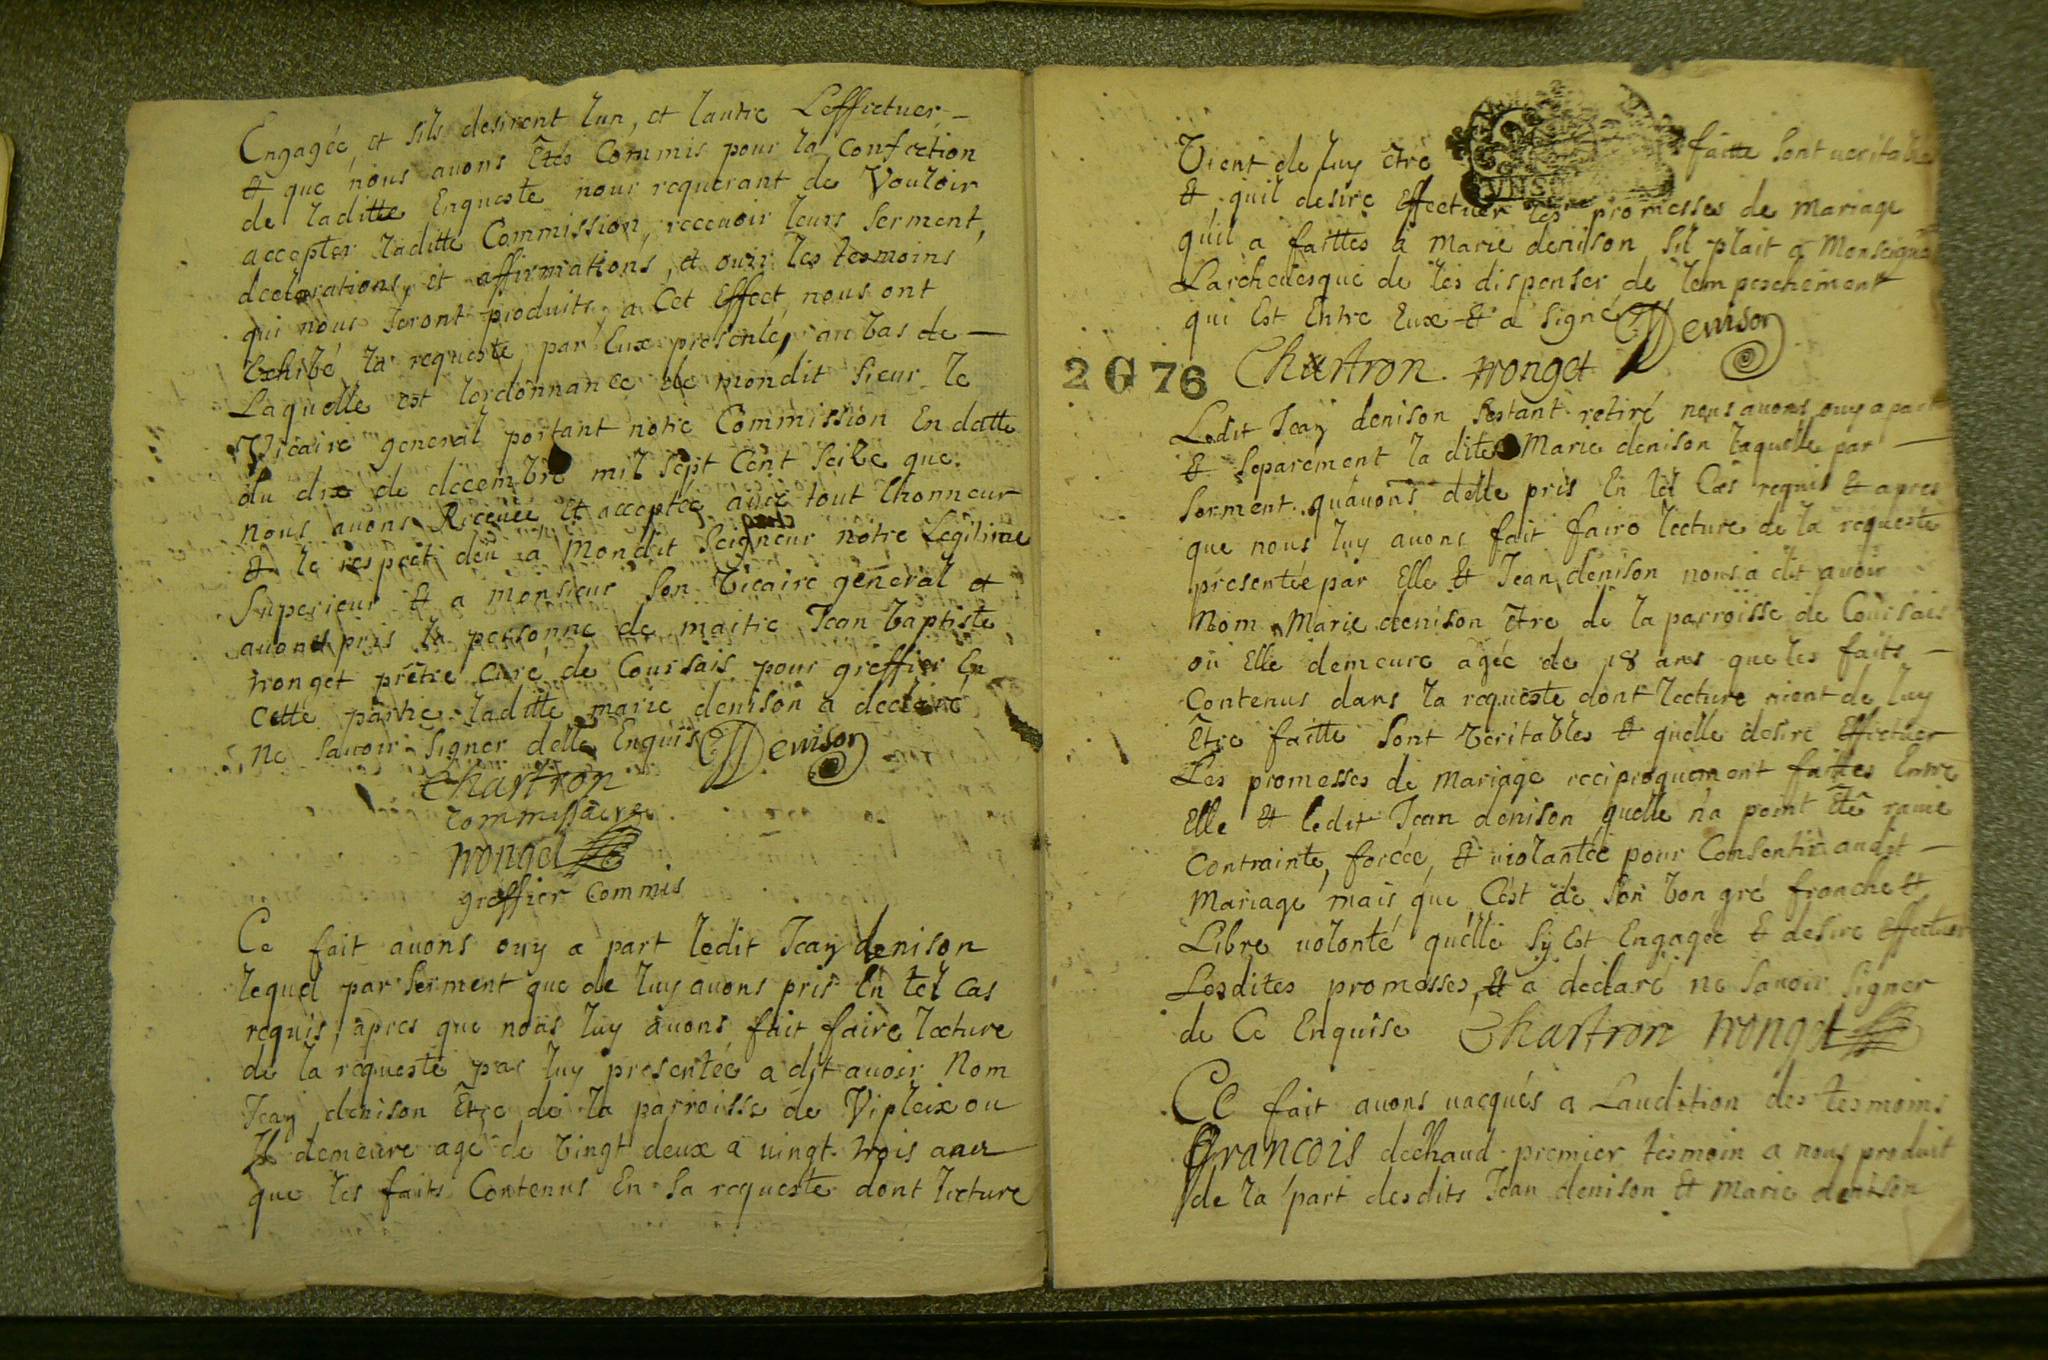 Engagée, et sils desirent lun, et lautre Leffectuer
et que nous avons Étés Commis pour la Confection
de laditte Enqueste nous requerant de Vouloir
accepter laditte Commission, recevoir leurs serment,
declarations, et affirmations, et ouir les tesmoins
qui nous seront produits, a Cet Effect, nous ont
Exhibé la requeste par Eux presenté, au bas de
Laquelle est lordonnance de mondit sieur le
Vicaire general portant notre Commission En datte
du dix de decembre mil sept Cent seize que
nous avons Receüe et acceptée avec tout lhonneur
et le respect deu a Mondit Seigneur notre Legitime
Superieur et a monsieur son Vicaire general et
avons pris la personne de maitre Jean baptiste
tronget prêtre Curé de Coursais pour greffier En
Cette partie laditte marie denison a declaré
ne savoir signer delle Enquis JDenison
Chartron
Commissaire
tronget
greffier Commis
Ce fait avons ouy a part ledit Jean denison
lequel par serment que de luy avons pris En tel cas
requis, apres que nous luy avons fait faire lecture
de la requeste par luy presentée a dit avoir Nom
Jean denison Être de la parroisse de Vipleix ou
Il demeure agé de vingt deux a vingt trois ans
que les faits Contenus En sa requeste dont lecture
Vient de luy être faitte sont veritables
et quil desire Effectuer les promesses de mariage
quil a faittes a marie denison sil plait a Monseigneur
Larchevesque de les dispenser de lempeschement
qui Est Entre Eux et a signé JDenison
2 G 76 Chartron tronget
Ledit Jean denison sestant retiré nous avons ouy a part
et separement la dite Marie denison laquelle par
serment quavons delle pris En tel Cas requis et apres
que nous luy avons fait faire lecture de la requeste
presentée par Elle et Jean denison nous a dit avoir
Nom Marie denison Être de la parroisse de Coursais
où Elle demeure agée de 18 ans que les faits
Contenus dans la requeste dont lecture vient de luy
Être faitte sont veritables et quelle desire Effectuer
Les promesses de mariage reciproquement faittes Entre
Elle et ledit Jean denison quelle na point Été ravie
Contrainte, forcée, et violantée pour Consentir audit
Mariage mais que Cest de son bon gré franche et
Libre volonté quelle sy Est Engagée et desire Effectuer
Lesdites promesses, et a declaré ne savoir signer
de Ce Enquise Chartron tronget
Ce fait avons vacqués a Laudition des tesmoins
François dechaud premier tesmoin a nous produit
de la part desdits Jean denison et marie denison